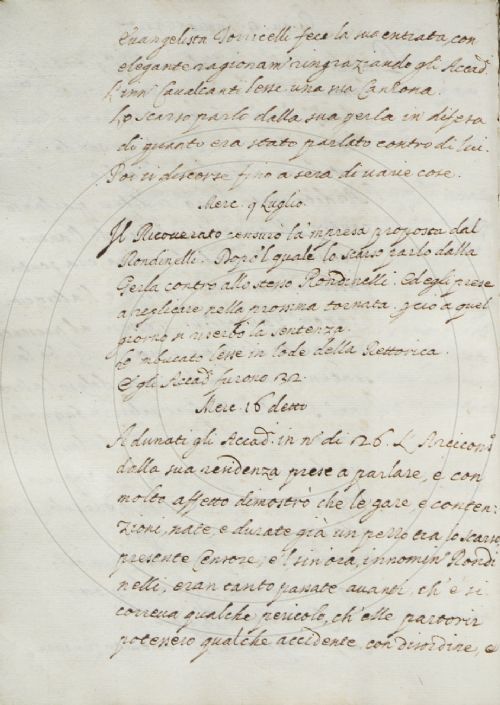 Evangelista Torricelli fece la sua entrata, con
elegante ragionam.to ringraziando gli Accad.
L'inn.to Cavalcanti lesse una sua Canzona.
Lo scarso parlò dalla sua gerla in difesa
di quanto era stato parlato contro di lui.
Poi si discorse fino a sera di varie cose.
Merc. 9 Luglio.
Il Ricoverato censurò la impresa proposta dal
Rondinelli. Dopo 'l quale lo scarso parlò dalla
Gerla contro allo stesso Rondinelli. Ed egli prese
a replicare nella prossima tornata. e ciò a quel
giorno si riserbò la sentenza.
Lo 'nbucato lesse in lode della Rettorica.
E gli Accad. furono 32.
Merc. 16 detto
Adunati gli Accad. in n.o di 26. L'Arcicon.o
dalla sua residenza prese a parlare, e con
molto affetto dimostrò che le gare, e conten-
zioni, nate, e durate già un pezzo tra lo scarso,
presente Censore, e 'l sin'ora innomin.to Rondi
nelli, eran tanto passate avanti, ch'e' si
correva qualche pericolo, ch'elle partorir
potessero qualche accidente, con disordine, e